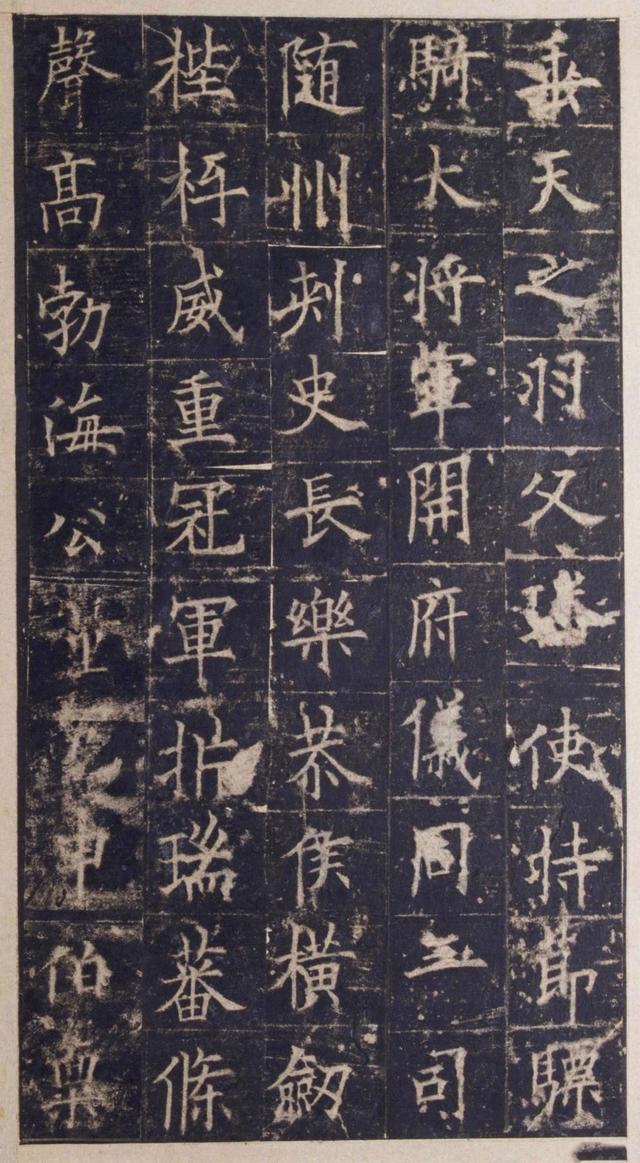 垂天之羽父璠使持節驃
騎大將軍開府儀同三司
隨州刺史長樂恭侯橫劒
梐枑威重冠軍析瑞蕃條
聲高勃海公申伯稟